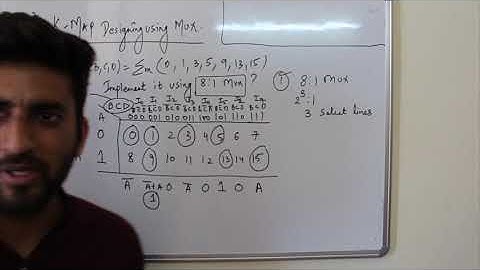 K-MAP Designing using MUX.
B,C,D) = Σm (0, 1, 3, 5, 9, 13, 15)
Implement it using 8:1 MUX ?
① 8:1 MUX
2³:1
3 Select lines
BCD
A 000 001 010 011 100 101 110 111
0 0 1 2 3 4 5 6 7
1 8 9 10 11 12 13 14 15
A̅ A̅+A 0 A̅ 0 1 0 A
1